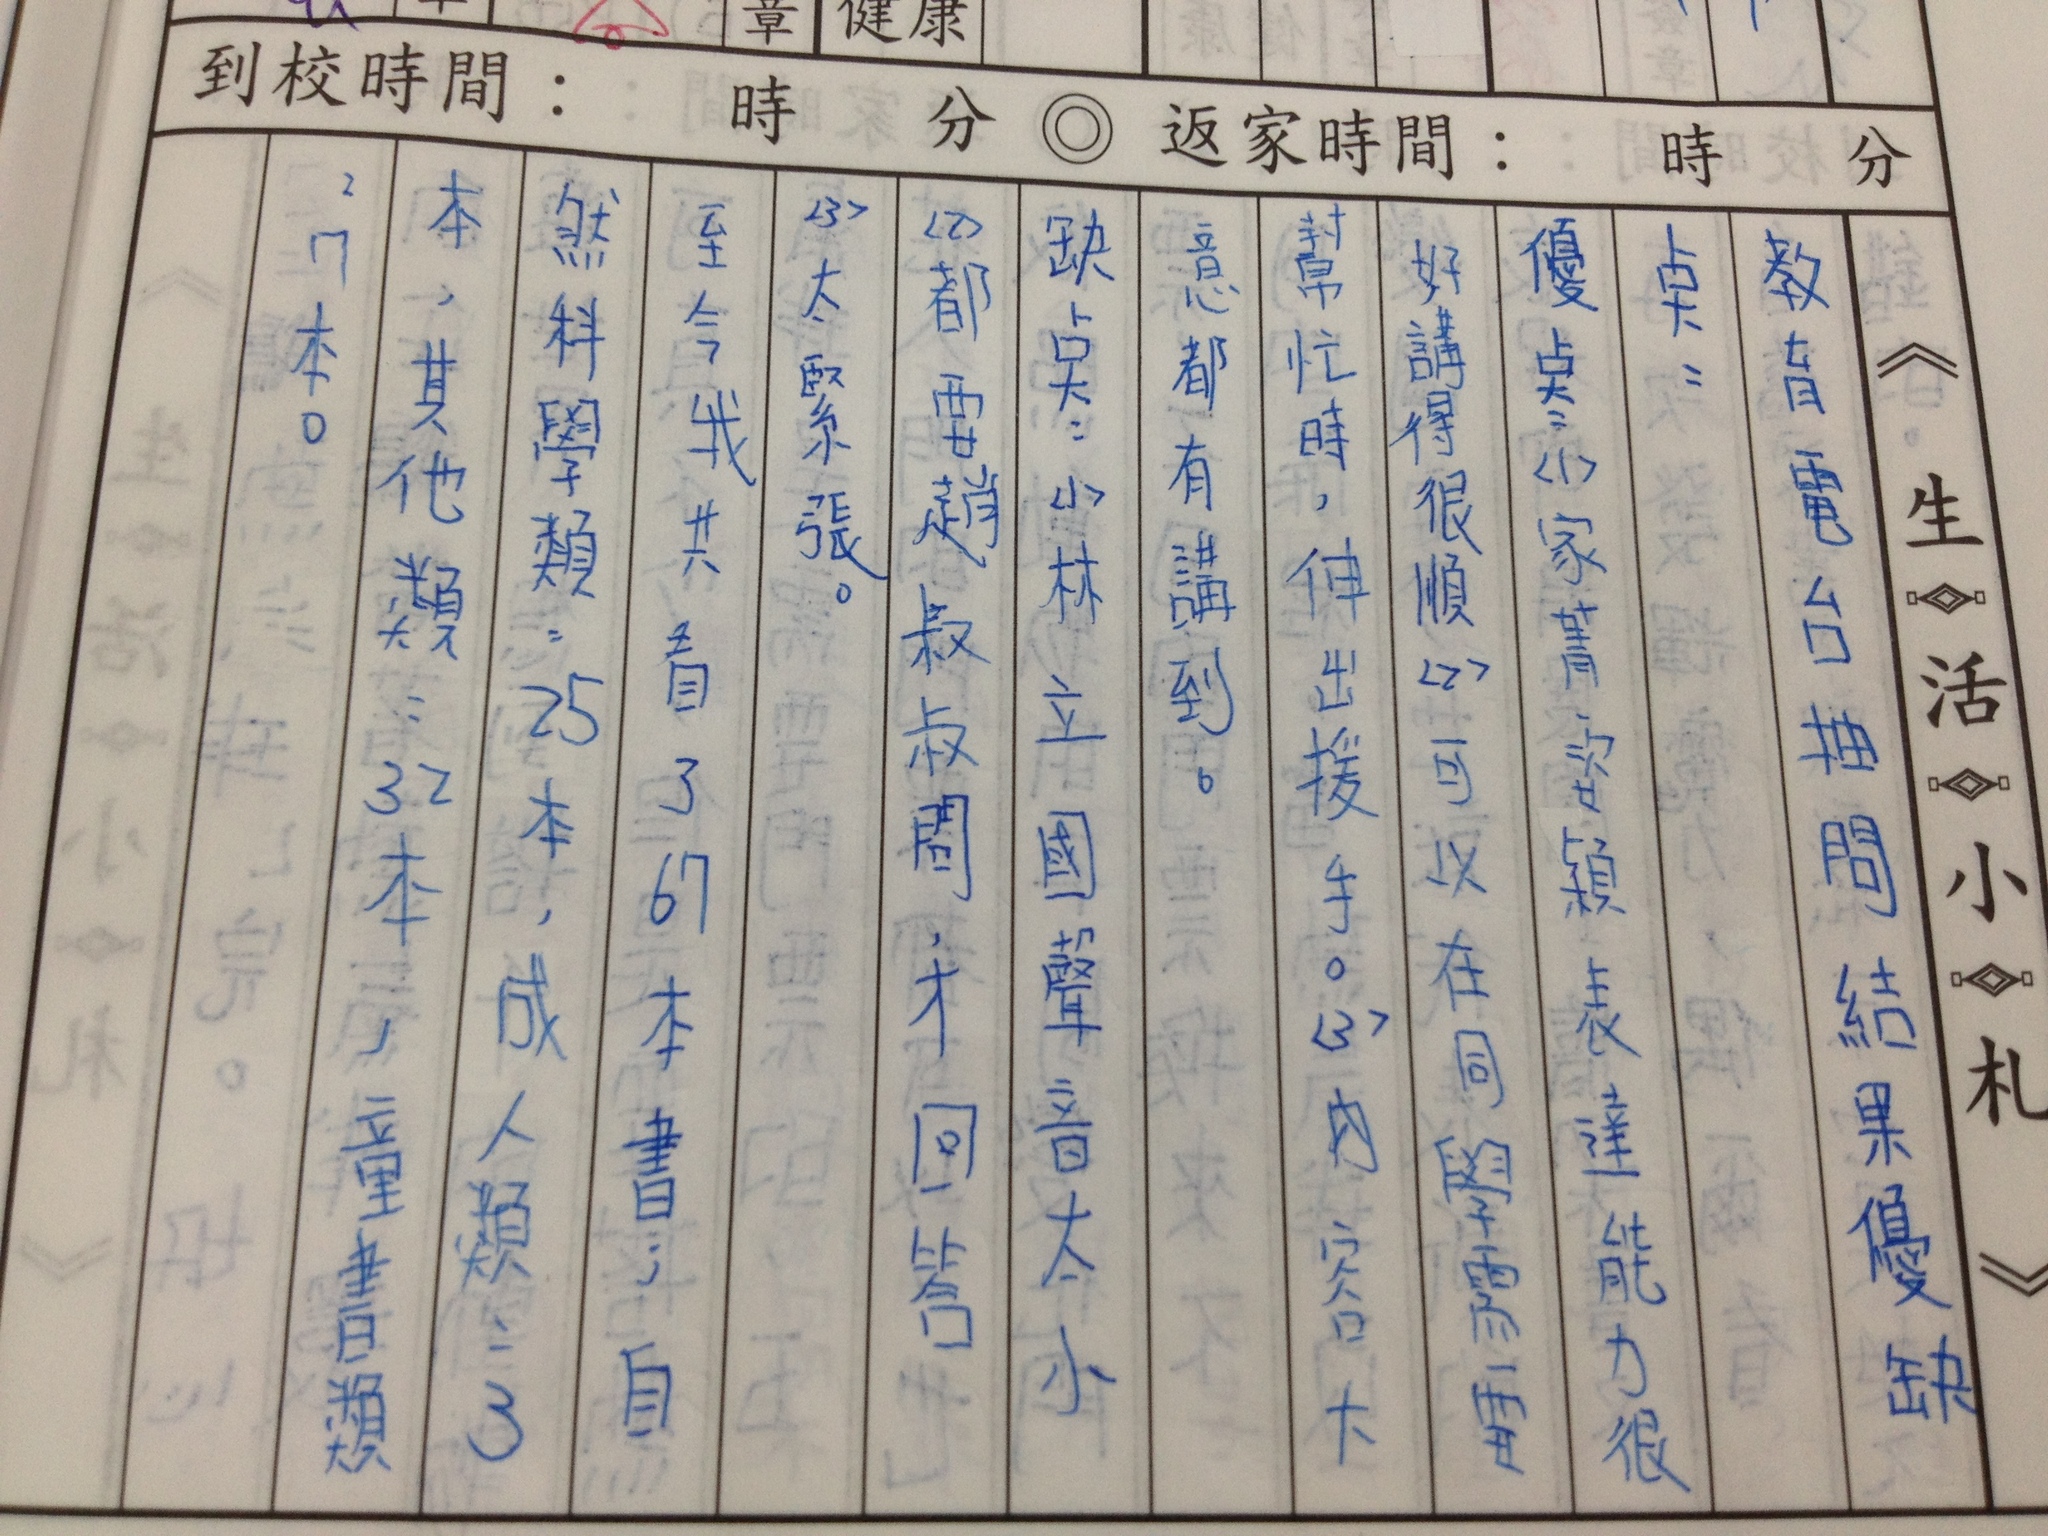 章 健康
到校時間： 時 分 ◎ 返家時間： 時 分
《生活小札》
教育電台抽問結果優缺
點：
優點：⑴家菁姿穎表達能力很
好講得很順⑵可以在同學需要
幫忙時，伸出援手。⑶內容大
意都有講到。
缺點：⑴林立國聲音太小
⑵都要趙叔叔問，才回答
⑶太緊張。
至今我共看367本書；自
然科學類：25本，成人類：3
本，其他類：32本，童書類
：7本。